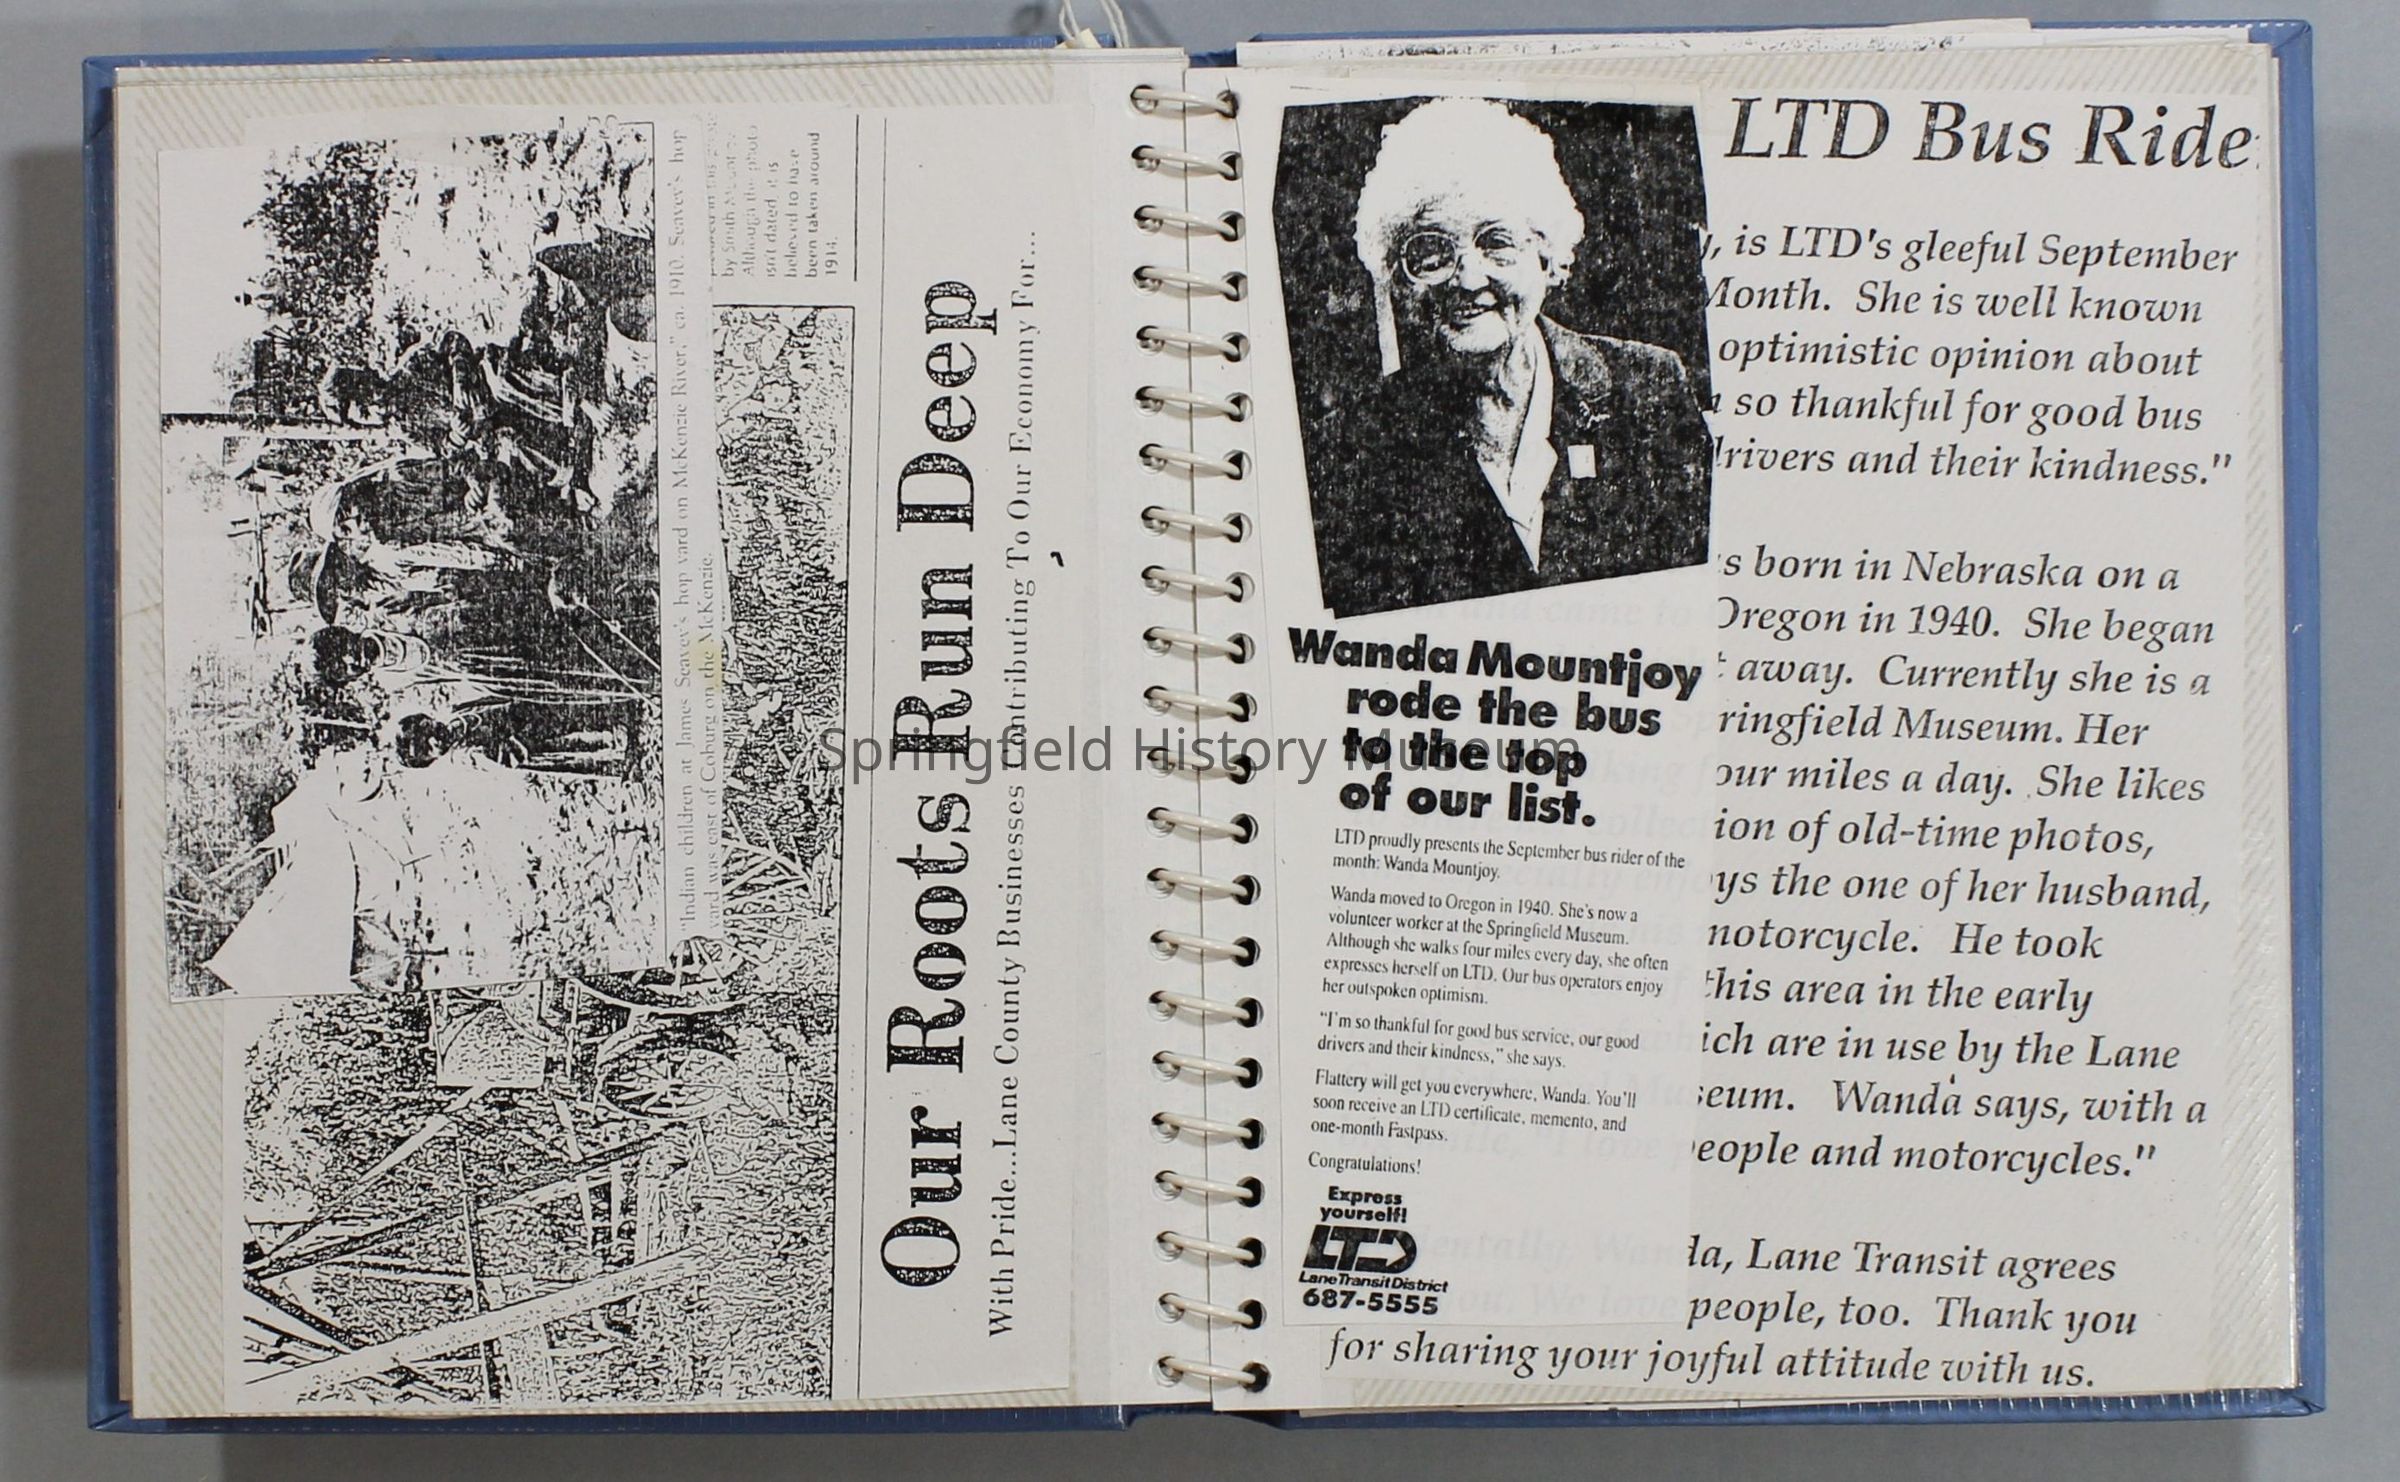 "Indian children at James Seavey's hop yard on McKenzie River," ca. 1910. Seavey's hop
yard was east of Coburg on the McKenzie.
by Smith
Although the photo
isn't dated, it is
believed to have
been taken around
1914.
Our Roots Run Deep
With Pride...Lane County Businesses Contributing To Our Economy For...
Springfield History Museum
Wanda Mountjoy
rode the bus
to the top
of our list.
LTD proudly presents the September bus rider of the
month: Wanda Mountjoy.
Wanda moved to Oregon in 1940. She's now a
volunteer worker at the Springfield Museum.
Although she walks four miles every day, she often
expresses herself on LTD. Our bus operators enjoy
her outspoken optimism.
"I'm so thankful for good bus service, our good
drivers and their kindness," she says.
Flattery will get you everywhere, Wanda. You'll
soon receive an LTD certificate, memento, and
one-month Fastpass.
Congratulations!
Express
yourself!
LTD
Lane Transit District
687-5555
LTD Bus Ride
, is LTD's gleeful September
Month. She is well known
optimistic opinion about
so thankful for good bus
drivers and their kindness."
s born in Nebraska on a
Oregon in 1940. She began
t away. Currently she is a
ringfield Museum. Her
our miles a day. She likes
ion of old-time photos,
ys the one of her husband,
motorcycle. He took
this area in the early
ich are in use by the Lane
seum. Wanda says, with a
people and motorcycles."
da, Lane Transit agrees
people, too. Thank you
for sharing your joyful attitude with us.